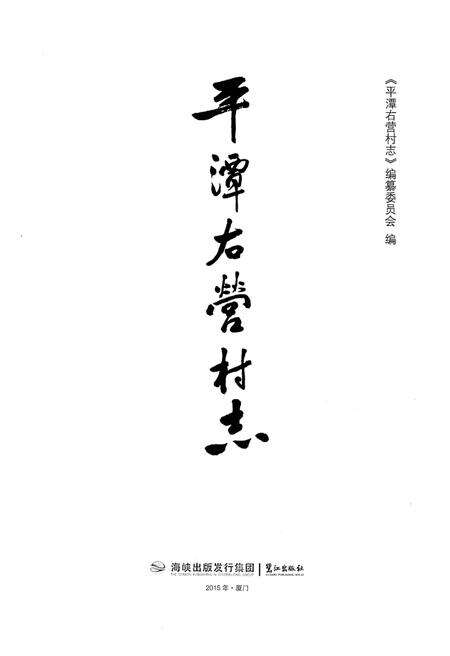 《平潭右营村志》编纂委员会 编
平潭右營村志
海峡出版发行集团 鹭江出版社
THE STRAITS PUBLISHING & DISTRIBUTING GROUP
2015年·厦门